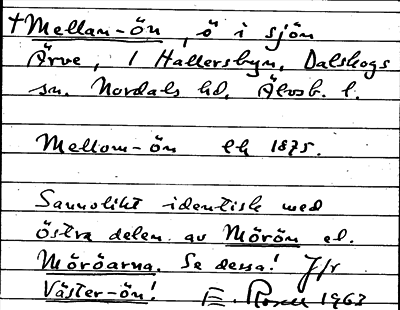 †Mellan-ön, ö i sjön
Ärve, i Hallersbyn, Dalskogs
sn. Nordals hd, Älvsb. l.
Mellom-ön ek 1875.
Sannolikt identisk med
östra delen av Mörön el.
Möröarna. Se dessa! Jfr
Väster-ön! E. 1963